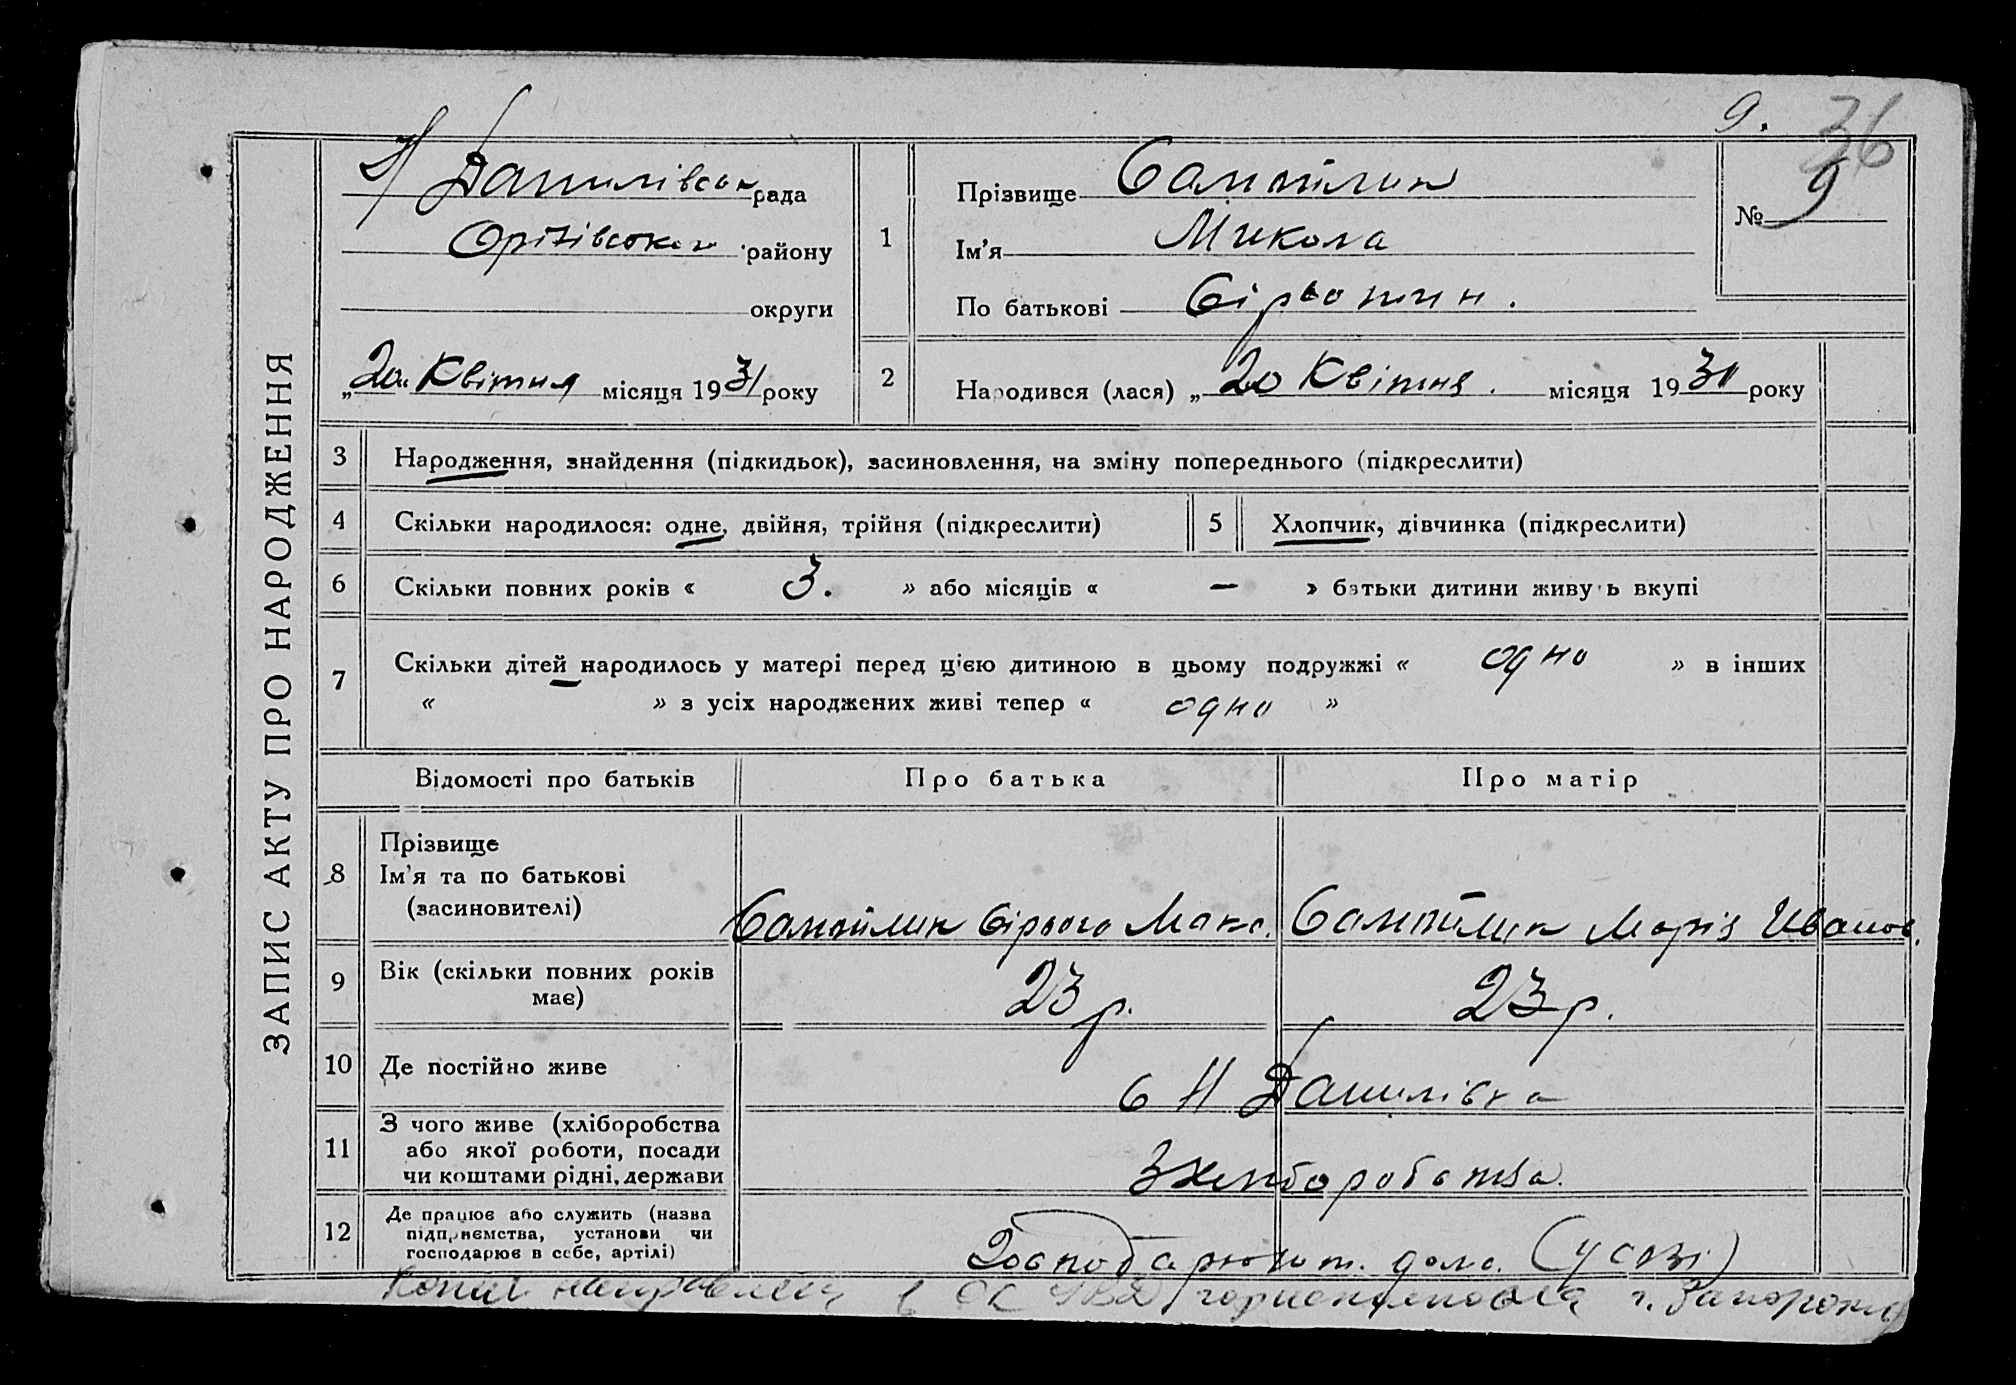 9.
36
Н/Данилівськ рада
Оріхівського району
округи
„20" Квітня місяця 1931 року
1
Прізвище Самойлик
Ім'я Микола
По батькові
№ 9
2
Народився (лася) „20 Квітня. місяця 1931 року
ЗАПИС АКТУ ПРО НАРОДЖЕННЯ
3 Народження, знайдення (підкидьок), засиновлення, на зміну попереднього (підкреслити)
4 Скільки народилося: одне, двійня, трійня (підкреслити) 5 Хлопчик, дівчинка (підкреслити)
6 Скільки повних років « 3. » або місяців « — » батьки дитини живуть вкупі
7 Скільки дітей народилось у матері перед цією дитиною в цьому подружжі « одно » в інших
« » з усіх народжених живі тепер « одно »
Відомості про батьків Про батька Про матір
8 Прізвище
Ім'я та по батькові
(засновителі)
Самойлик Макс. Самойлик Марія Иванов.
9 Вік (скільки повних років
має)
23 р. 23 р.
10 Де постійно живе с Н Данилівка
11 З чого живе (хліборобства
або якої роботи, посади
чи коштами рідні, держави
З хлиборобства.
12 Де працює або служить (назва
підприємства, установи чи
господарює в себе, артілі)
Господарюют. дома. (у созі)
г. Запорожье